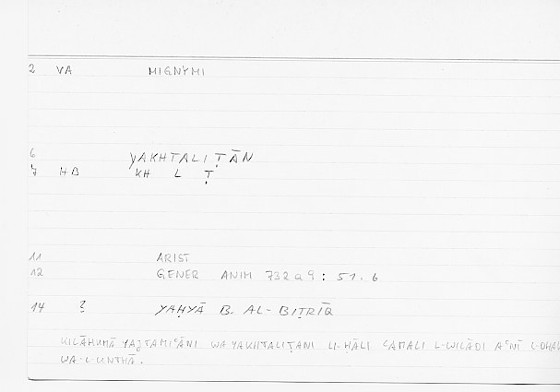 2 VA MIGNYMI
6 YAKHTALIṬĀN
7 HB KH L Ṭ
11 ARIST
12 GENER ANIM 732a9: 51.6
14 ? YAḤYĀ B. AL-BIṬRĪQ
KILĀHUMĀ YAJTAMIʿĀNI WA YAKHTALIṬANI LI-ḤĀLI L-WILĀDI AʿNĪ
WA-L-UNTHĀ.